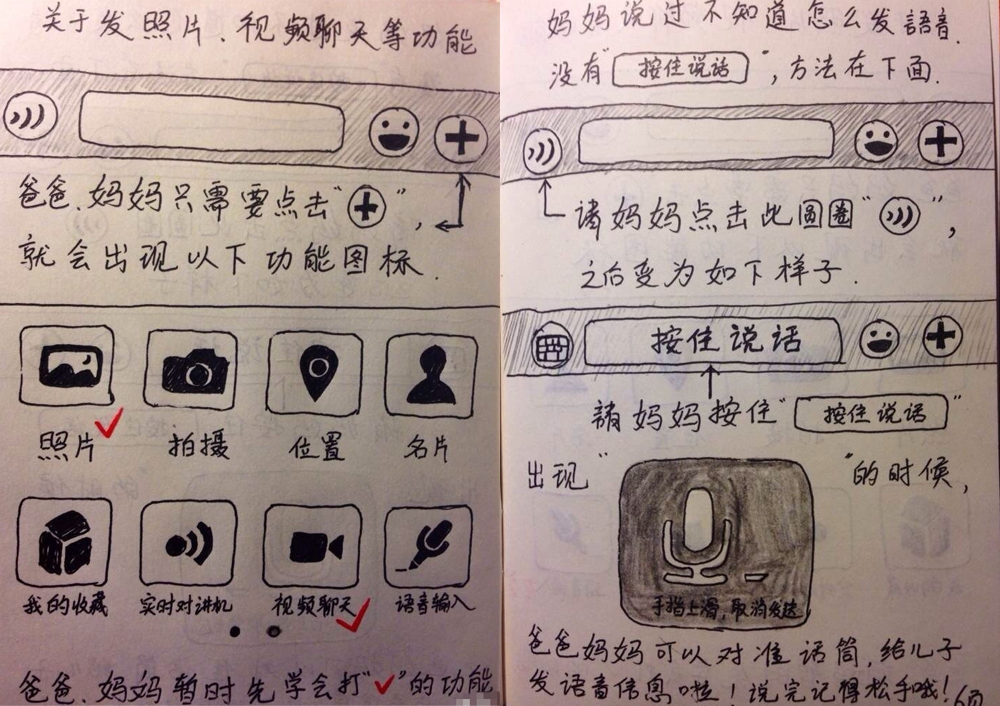 关于发照片、视频聊天等功能
爸爸、妈妈只需要点击“+”,
就会出现以下功能图标.
照片 拍摄 位置 名片
我的收藏 实时对讲机 视频聊天 语音输入
爸爸、妈妈暂时先学会打“✓”的功能
妈妈说过不知道怎么发語音.
没有“按住说话”,方法在下面.
请妈妈点击此圆圈“ ”,
之后变为如下样子.
按住说话
請妈妈按住“按住说话”
出现“ ”的时候,
手指上滑,取消发送
爸爸妈妈可以对准话筒,给儿子
发语音信息啦!说完记得松手哦!